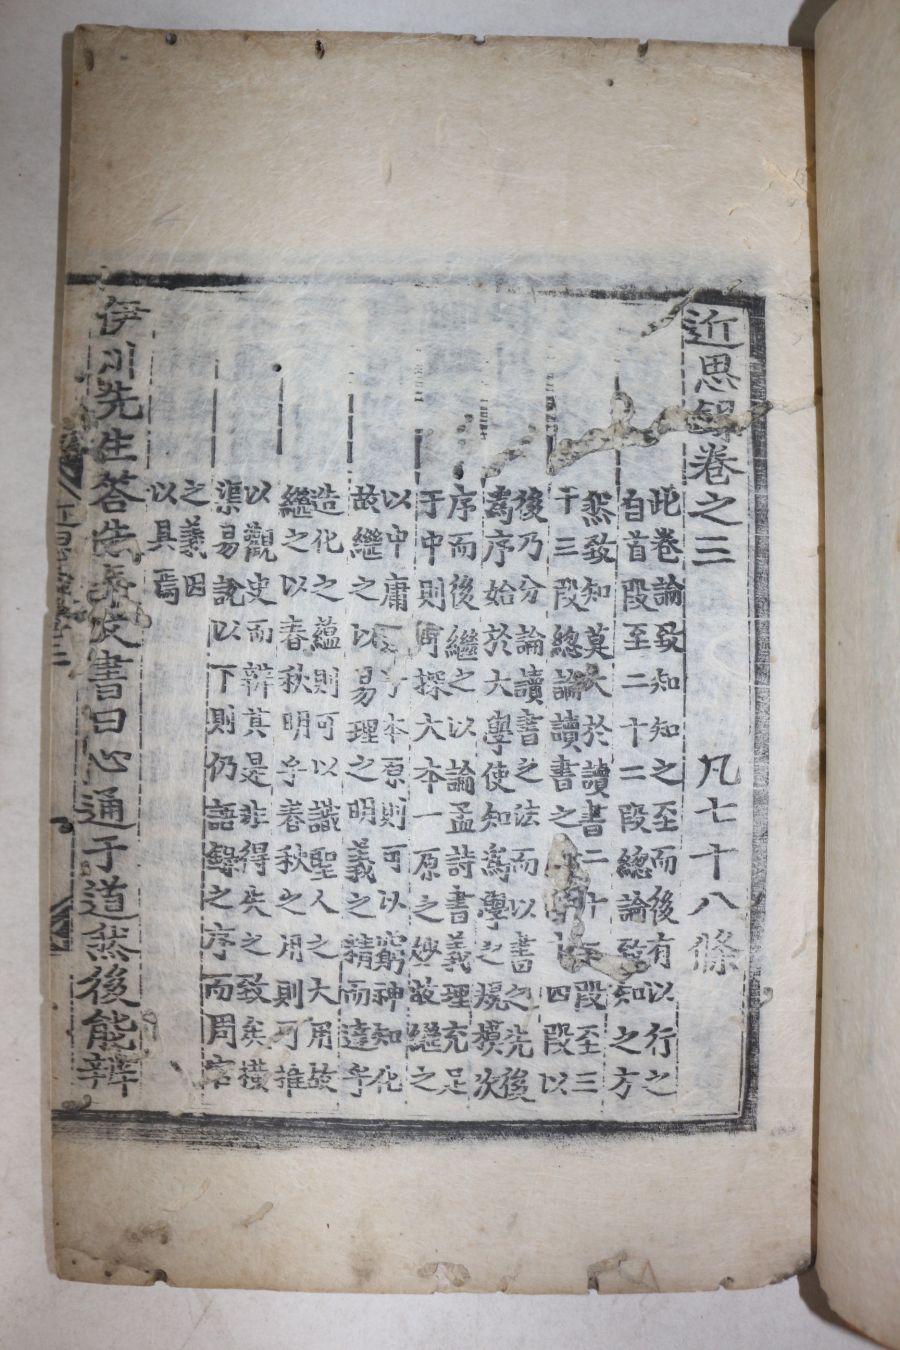 近思錄卷之三 凡七十八條
此卷論致知知之至而後有以行之
自首段至二十二段總論致知之方
然致知莫大於讀書二十三段至三
十三段總論讀書之四段以
後乃分論讀書之法而以書之先後
爲序始於大學使知爲學之規模次
序而後繼之以論孟詩書義理充足
于中則可探大本一原之妙故繼之
以中庸乎本原則可以窮神知化
故繼之以易理之明義之精而達乎
造化之蘊則可以識聖人之大用故
繼之以春秋明乎春秋之用則可推
以觀史而辨其是非得失之致矣橫
渠易說以下則仍語錄之序而周官
之義因
以具焉
伊川先生答朱長文書曰心通乎道然後能辨